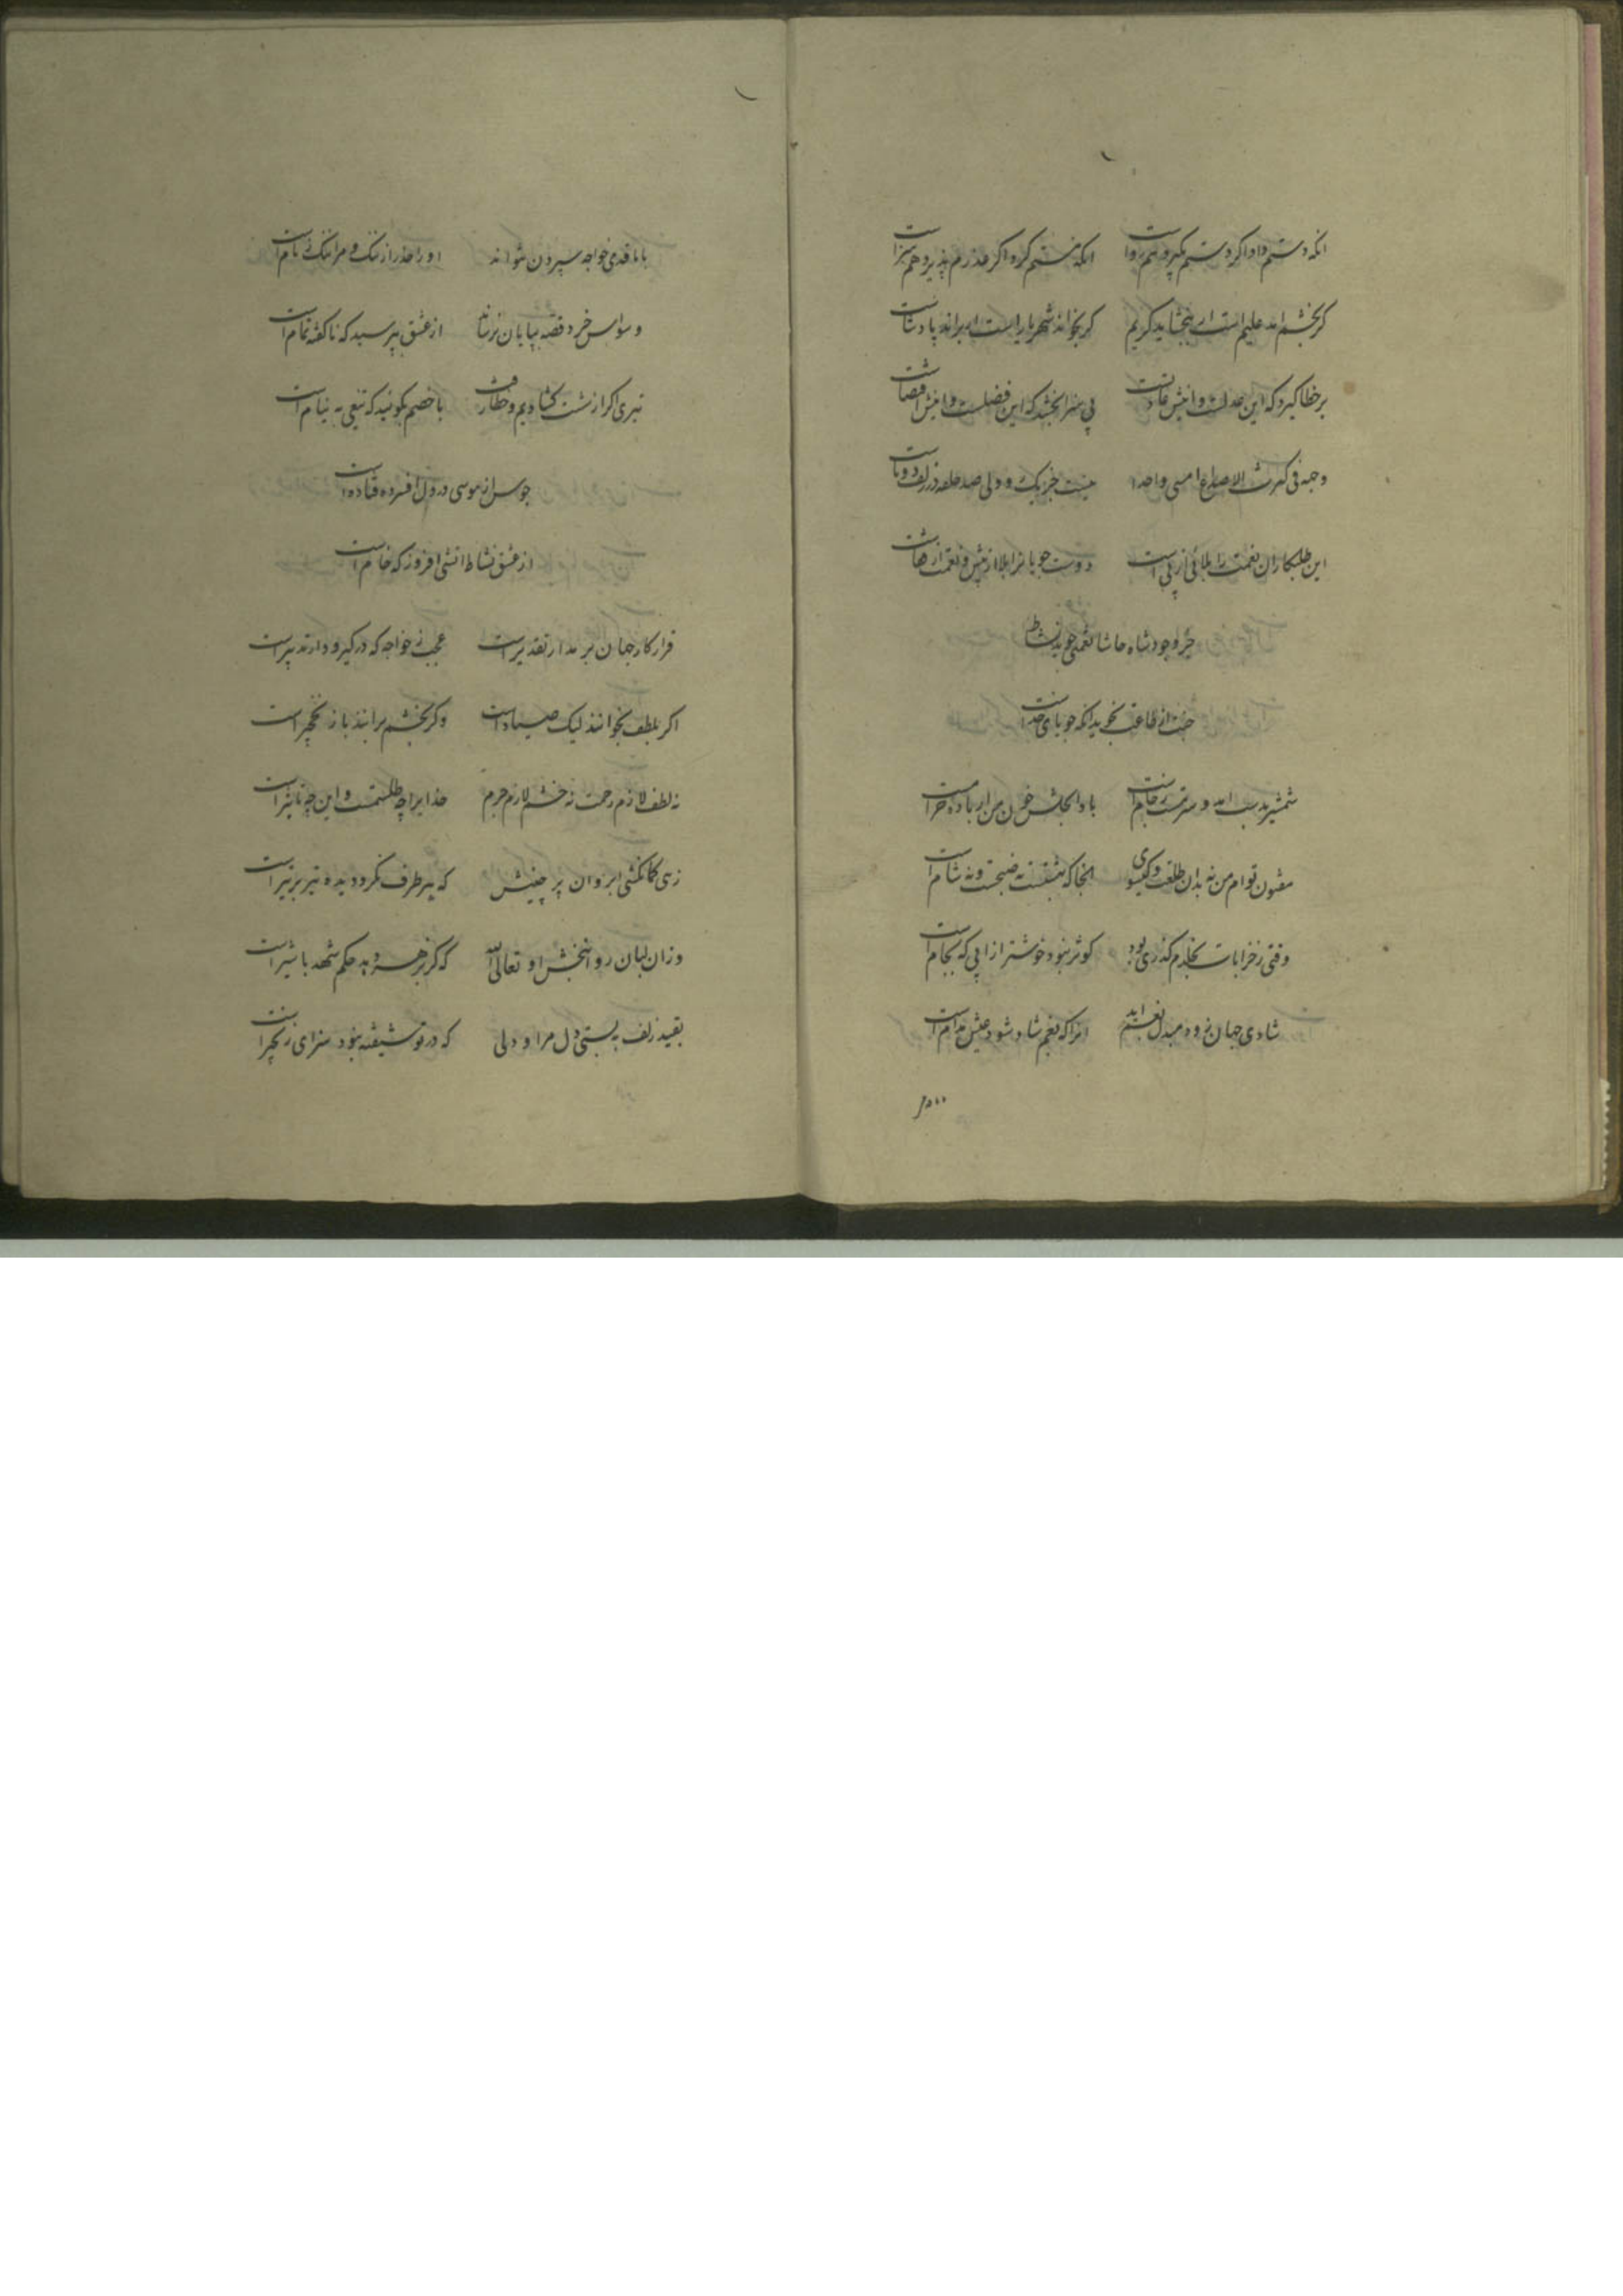 انکه دستم داد اکر دستم بکیرد هم رواست انکه مستم کرد اکر عذرم پذیرد هم سزاست
کر بخشم اید حلیم است ار ببخشاید کریم کر بخواند شهریار است ار براند پادشاست
بر خطا کیرد که این عدلست و انیش عادتست بی سزا بخشد که این فضلست و انیش اقتضاست
وجهه فی کثرت الاصداغ امسی واحدا نیست جز یک و ولی صد حلقه در زلف دوتاست
این طلبکاران نعمت را بلائی از پی است دوست جویانرا بلا از پیش و نعمت از قفاست
جز وجود شاه حاشا نعمتی جوید نشاط
جنت از طاعت نجوید انکه جویای خداست
شمشیر بدست امد و سرمست ز جام است بادا بحلش خون من ار باده حرام است
مفتون توام من نه بدان طلعت و کیسوی انجا که تو نه صبحست و نه شام است
وقتی ز خرابات بخلدم کذری بود کوثر نبود خوشتر از ابی که بجام است
شادی جهان زود مبدل بغم اید انرا که بغم شاد شود عیش مدام است
با ما قدمی خواجه سپردن نتواند او را حذر از ننک و مرا ننک ز نام است
وسواس خرد قصه بپایان نرساند از عشق بپرسید که ناکفته تمام است
تیری اکر از شست کشادیم و خطا رفت با خصم بکوئید که تیغی به نیام است
جوس از موسی در دل افسرده فتاده است
از عشق نشاط اتشی افروز که خام است
قرار کار جهان بر مدار تقدیر است عجب ز خواجه که در کیر و دار تدبیر است
اکر بلطف بخوانند لیک صیاد است وکر بخشم برانند باز نخجیر است
نه لطف لازم رحمت نه خشم لازم جرم خدایرا چه طلسمست و این چه تاثیر است
زهی کمانکشی ابروان پر چینش که هر طرف نکرد دیده تیر بر تیر است
وزان لبان روانبخش او تعالی الله که کر زهر دهد حکم شهد با شیر است
بقید زلف به بستی دل مرا و دلی که در تو شیفته نبود سزای زنجیر است